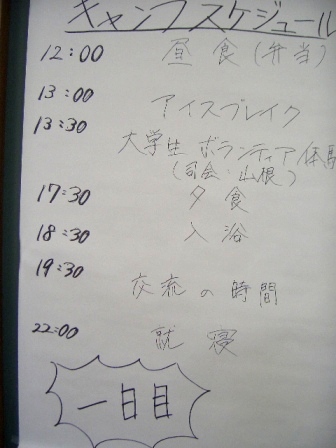 キャンプスケジュール
12:00 昼食(弁当)
13:00 アイスブレイク
13:30 大学生ボランティア体験
(司会・山根)
17:30 夕食
18:30 入浴
19:30 交流の時間
22:00 就寝
一日目